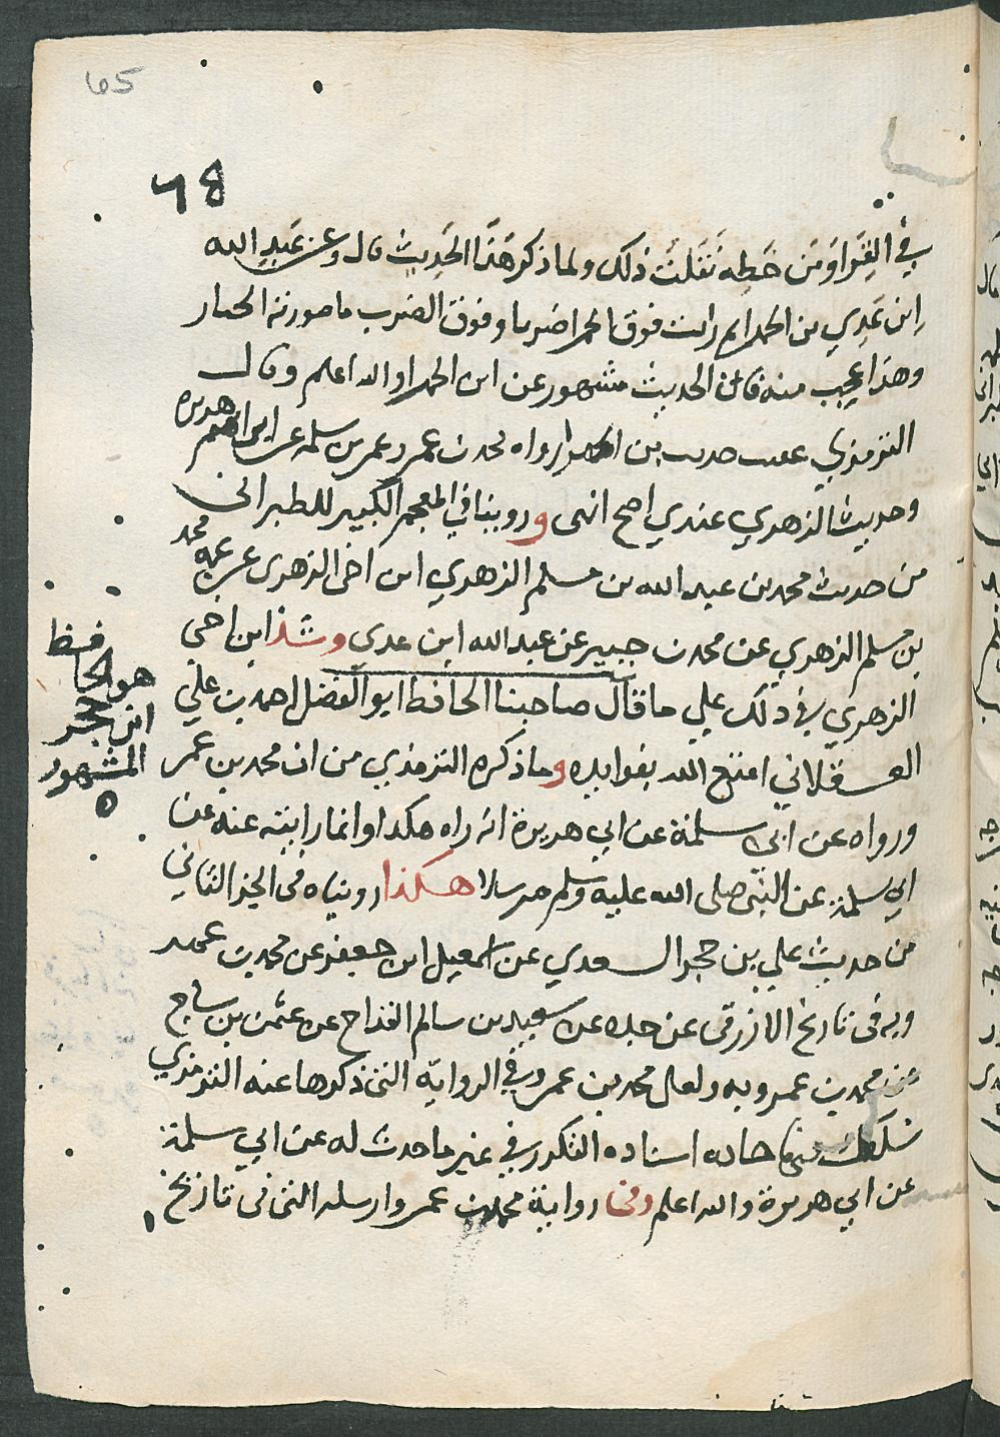 65
٦٨
في القِرَاوَمن خَطِه نَقَلتُ ذلك ولما ذكر هَذَا الحَدِيث قال وعن عَبدِ الله
ابن عَدِي بن الحمرا
وهذا عجيب منه فان الحديث مشهور عن ابن الحمرا والله اعلم وقال
الترمذي عقب حديث بن الحمرا رواه محمد بن عمرو عن سلمه عن ابي هريره
وحديث الزهري عندي اصح انتهى وروينا في المعجم الكبير للطبراني
من حديث محمد بن عبد الله بن مسلم الزهري ابن اخى الزهرى عن عمه محمد
بن مسلم الزهري عن محمد بن جبير عن عبد الله ابن عدى وشذ ابن اخى
الزهري في ذلك علي ما قال صاحبنا الحافظ ابو الفضل احمد بن علي
العسقلاني امتع الله بفوايده وما ذكره الترمذي من ان محمد بن عمر
ورواه عن ابى سلمة عن ابي هريرة انه راه هكدا وانما رايته عنه عن
ابي سلمة عن النبى صلى الله عليه وسلم مرسلا هكذا رويناه فى الجز الثاني
من حديث علي بن حجر السعدي عن اسمعيل ابن جعفر عن محمد بن عمر
وبه فى تاريخ الازرقى عن جده عن سعيد بن سالم القداح عن عثمن بن ساج
عن محمد بن عمرو به ولعل محمد بن عمرو في الرواية التى ذكرها عنه الترمذي
سلك اسناده في غير ما حدث له عن ابي سلمة
عن ابي هريرة والله اعلم وفى رواية محمد بن عمرو ارسله التى فى تاريخ
هو الحافظ
ابن حجر
المشهور